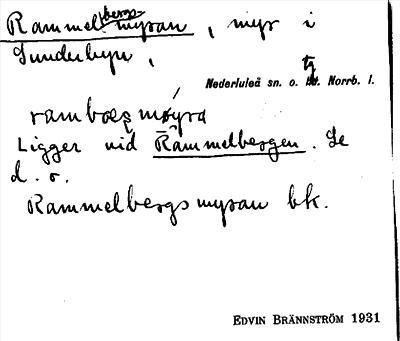 Rammelbergsmyran, myr i
Sunderbyn,
Nederluleå sn. o. tg. Norrb. l.
Ligger vid Rammelbergen. Se
d. o.
Rammelbergsmyran bk.
EDVIN BRÄNNSTRÖM 1931